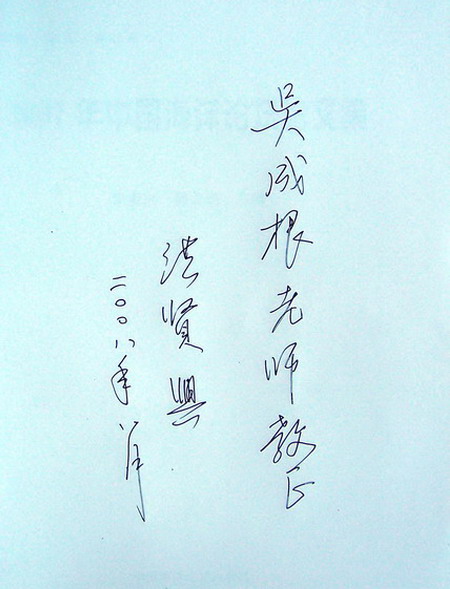 吴成根老师教正
洪贤兴
二〇〇八年八月